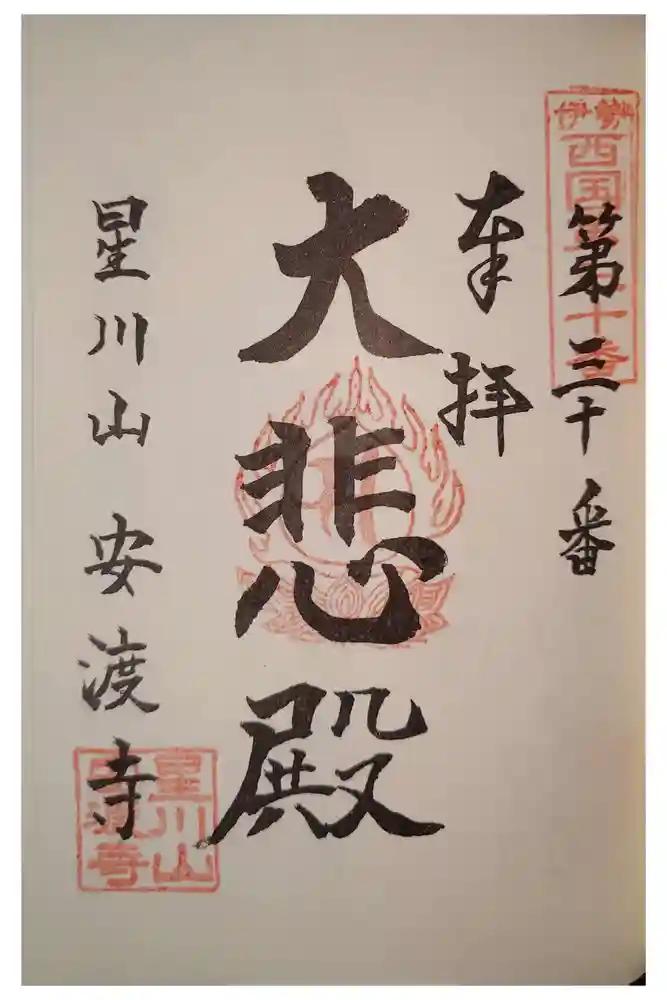 第三十番
奉拝
大悲殿
星川山 安渡寺
伊勢
西国三十番
星川山
安渡寺